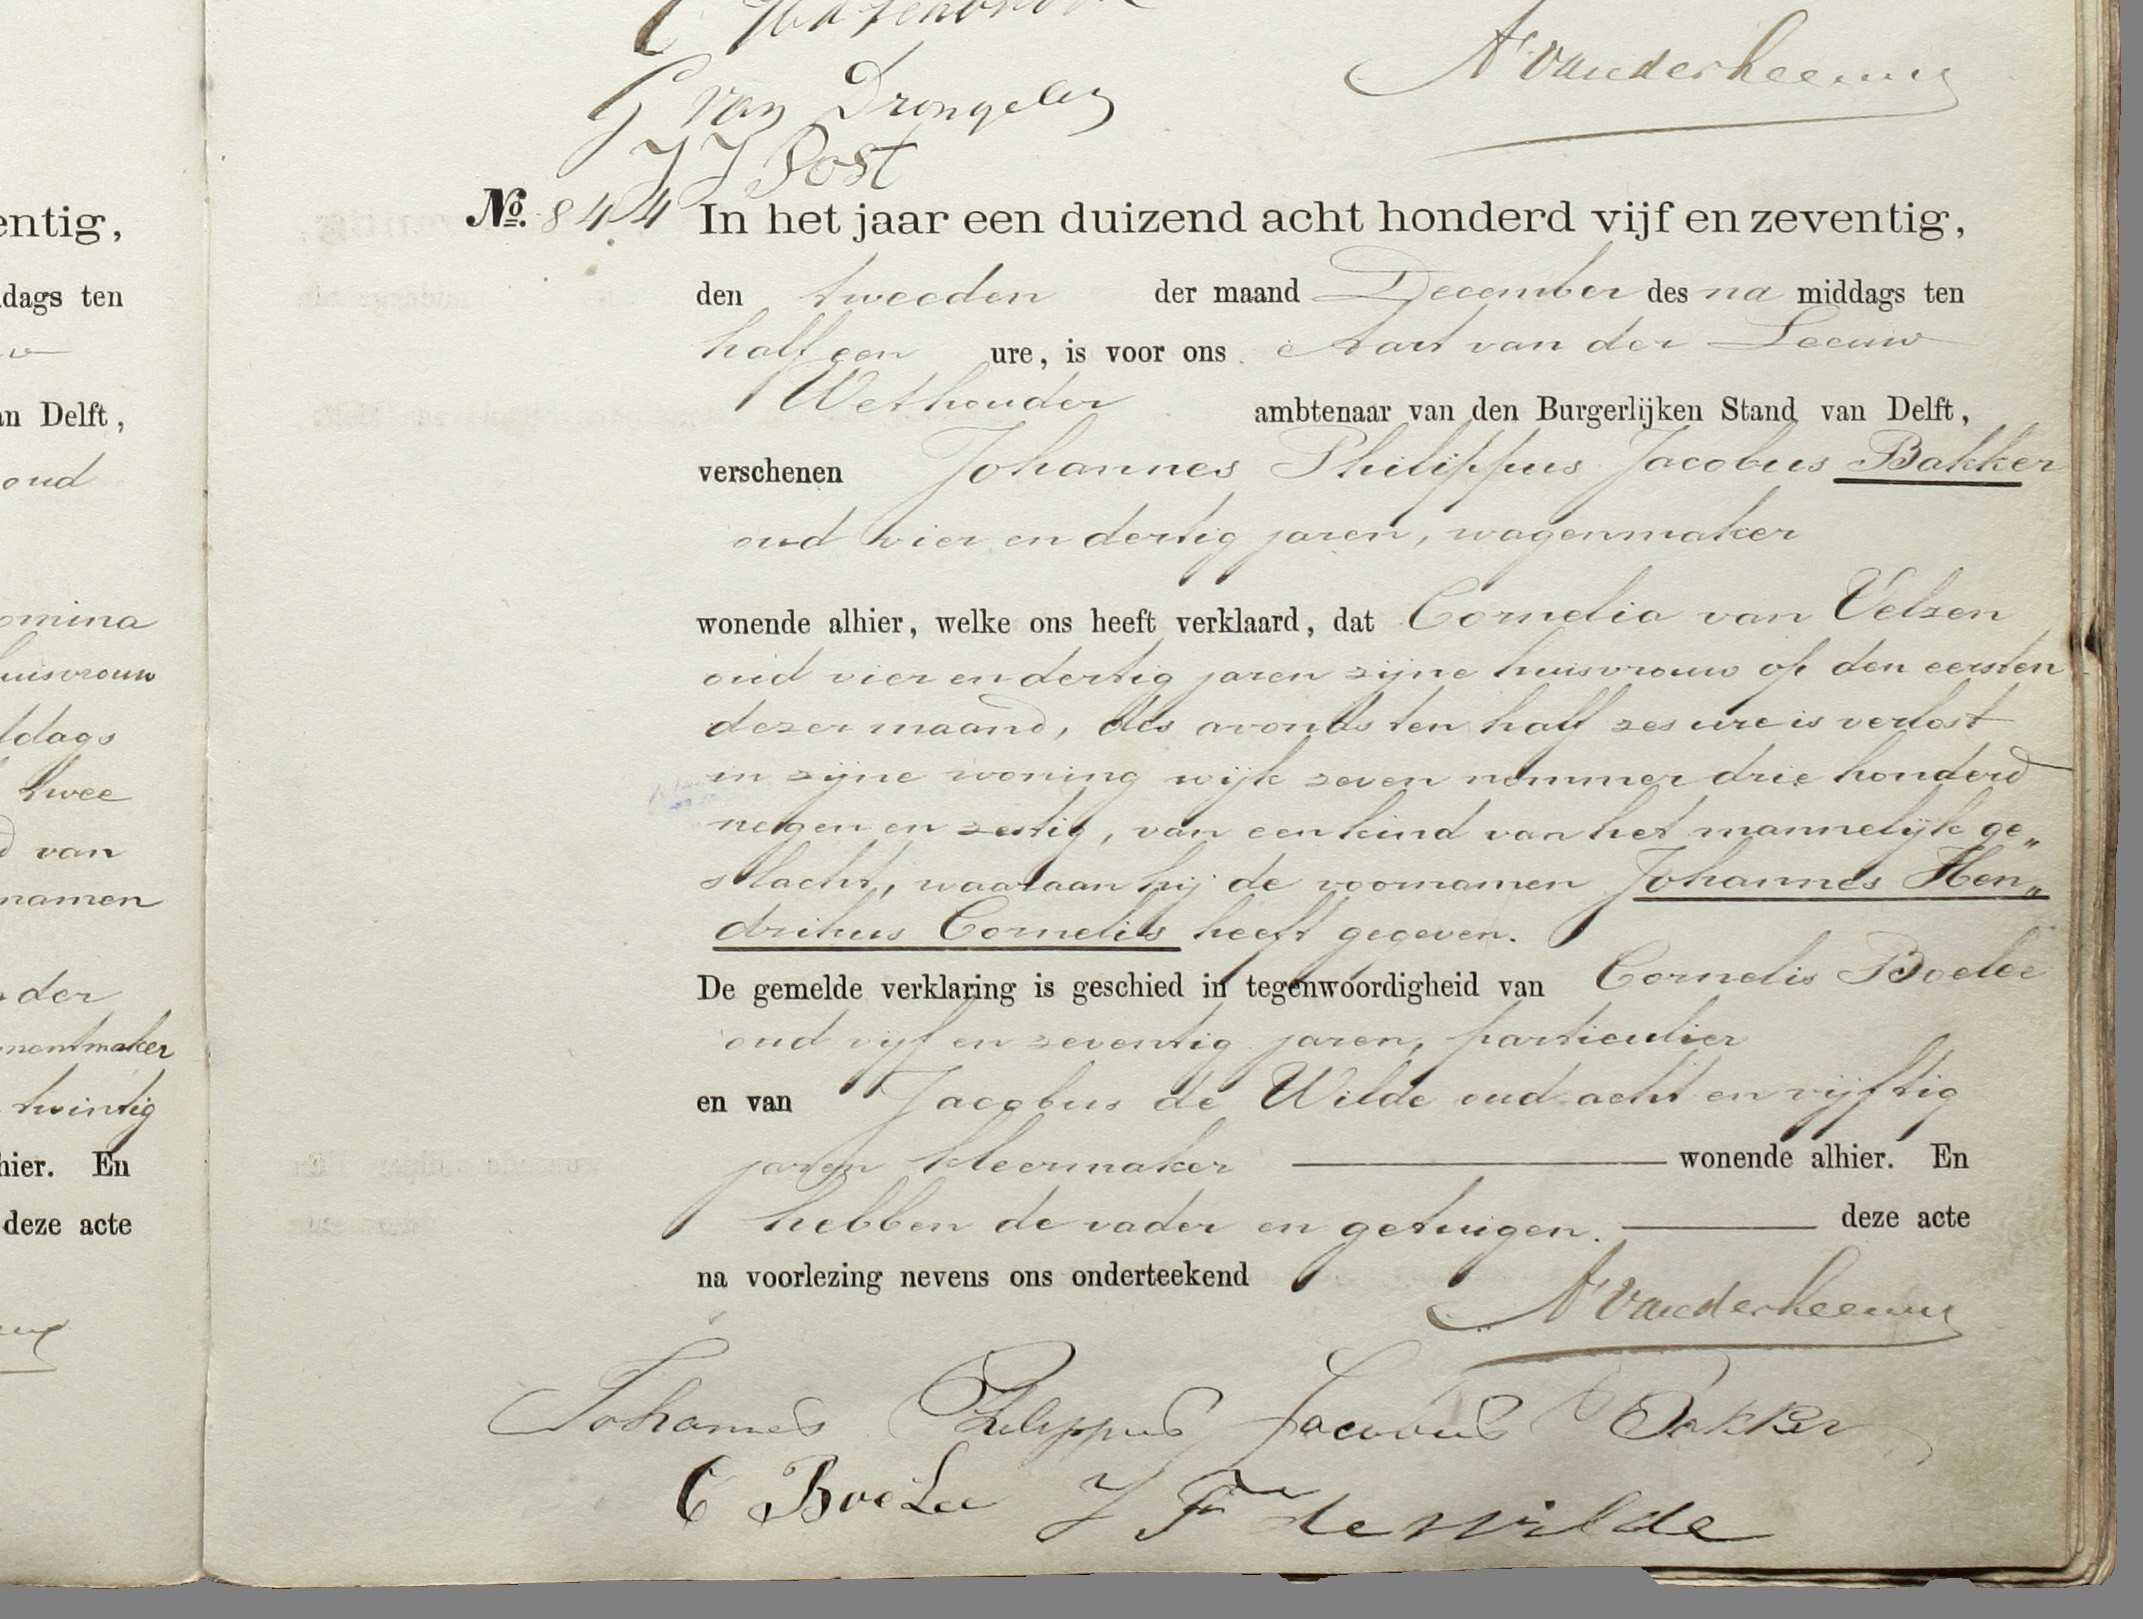 entig,
ddags ten
an Delft,
oud
omina
huisvrouw
ddags
twee
van
namen
der
mentmaker
twintig
hier. En
deze acte
A Vanderleeuw
G van Drongelen
J J Post
No. 844 In het jaar een duizend acht honderd vijf en zeventig,
den tweeden der maand December des na middags ten
half een ure, is voor ons Aart van der Leeuw
Wethouder ambtenaar van den Burgerlijken Stand van Delft,
verschenen Johannes Philippus Jacobus Bakker
oud vier en dertig jaren, wagenmaker
wonende alhier, welke ons heeft verklaard, dat Cornelia van Velzen
oud vier en dertig jaren zijne huisvrouw op den eersten
dezer maand, des avonds ten half zes ure is verlost
in zijne woning wijk zeven nommer drie honderd
negen en zestig, van een kind van het mannelijk ge„
slacht, waaraan hij de voornamen Johannes Hen„
drikus Cornelis heeft gegeven.
De gemelde verklaring is geschied in tegenwoordigheid van Cornelis Boelee
oud vijf en zeventig jaren, particulier
en van Jacobus de Wilde oud acht en vijftig
jaren kleermaker wonende alhier. En
hebben de vader en getuigen. deze acte
na voorlezing nevens ons onderteekend
A Vanderleeuw
Johannes Philippus Jacobus Bakker
C BoeLee J F de Wilde